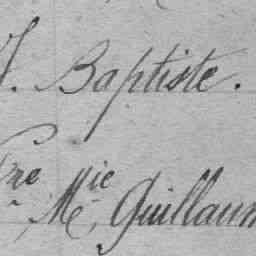 J. Baptiste.
Pre Mie
Mc, Guillaum